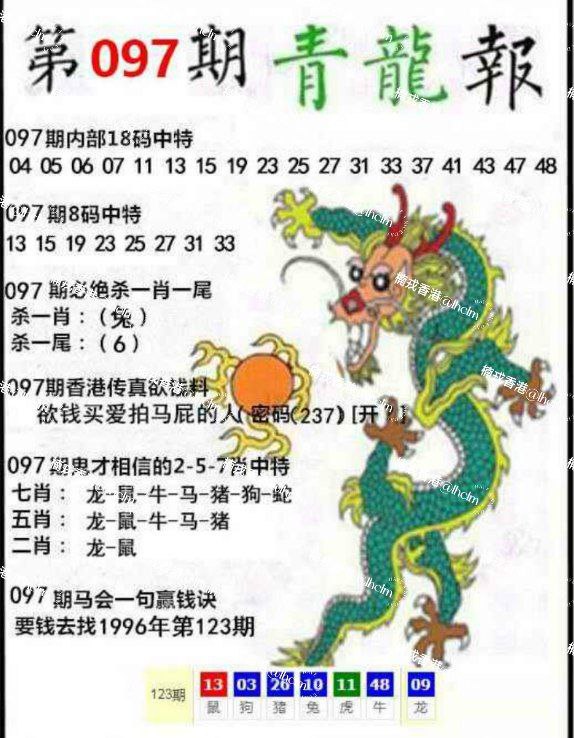 第097期青龍報
097期内部18码中特
04 05 06 07 11 13 15 19 23 25 27 31 33 37 41 43 47 48
097期8码中特
13 15 19 23 25 27 31 33
097期必绝杀一肖一尾
杀一肖：(兔)
杀一尾：(6)
097期香港传真欲钱料
欲钱买爱拍马屁的人(密码(237)[开
097期鬼才相信的2-5-7肖中特
七肖： 龙-鼠-牛-马-猪-狗-蛇
五肖： 龙-鼠-牛-马-猪
二肖： 龙-鼠
097期马会一句赢钱诀
要钱去找1996年第123期
123期 13 03 26 10 11 48 09
鼠 狗 猪 兔 虎 牛 龙